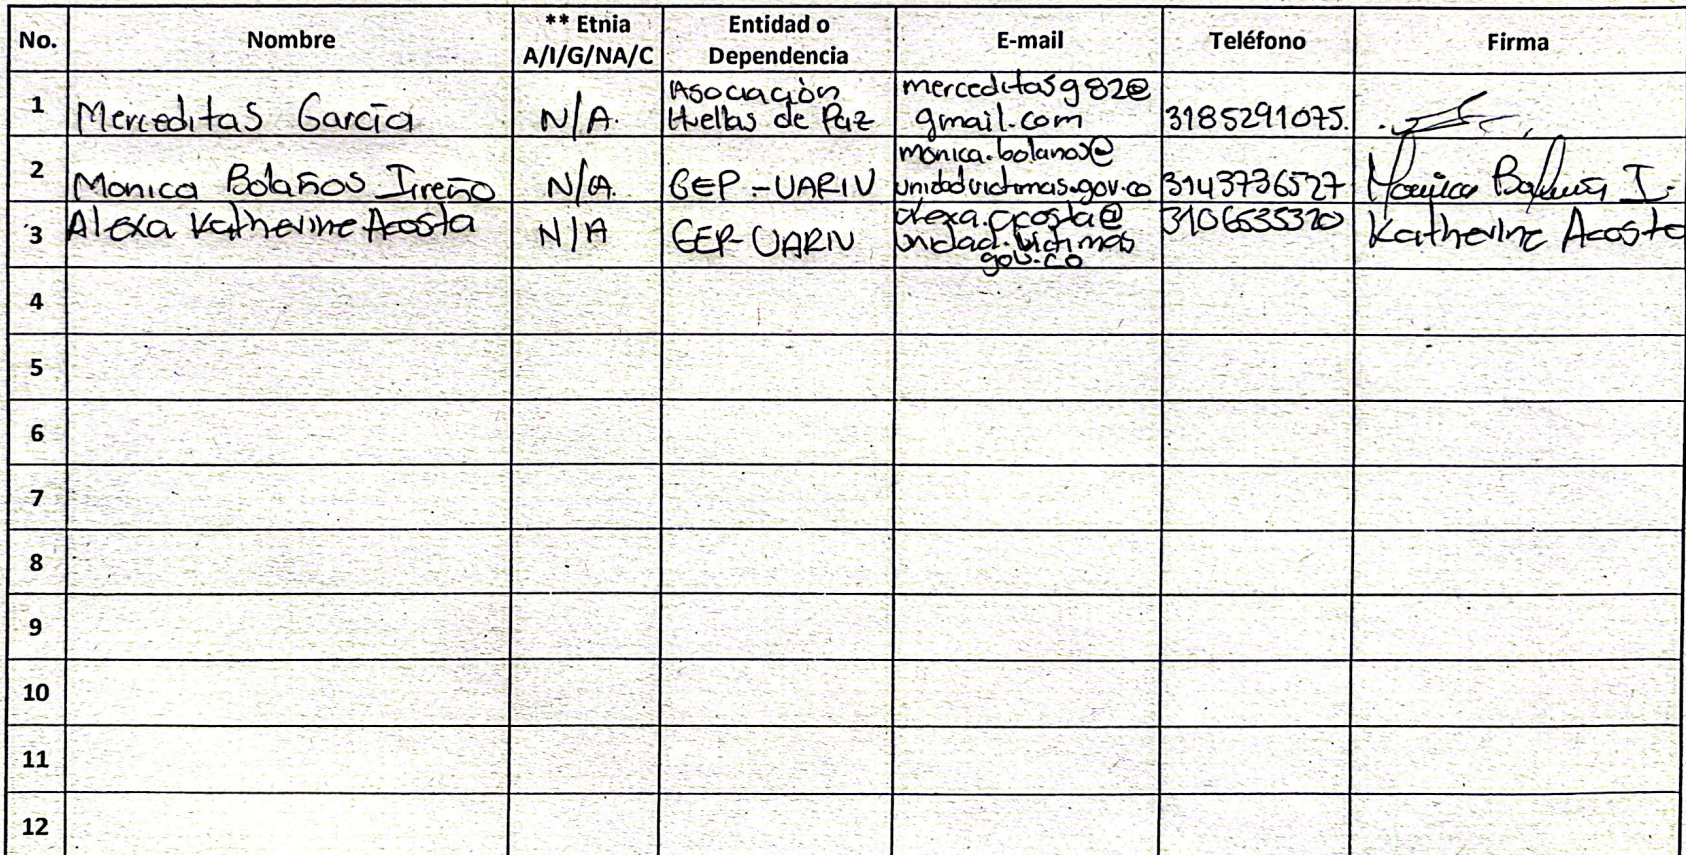 No. Nombre ** Etnia A/I/G/NA/C Entidad o Dependencia E-mail Teléfono Firma
1 Merceditas García N/A. Asociación Huellas de Paz merceditasg82@gmail.com 3185291075.
2 Monica Bolaños Ireño N/A. GEP-UARIV monica.bolanos@unidadvictimas.gov.co 3143736527 Monica Bolaños I.
3 Alexa Katherine Acosta N/A GEP-UARIV alexa.acosta@unidad.victimas gov.co 3106535320 Katherine Acosta
4
5
6
7
8
9
10
11
12